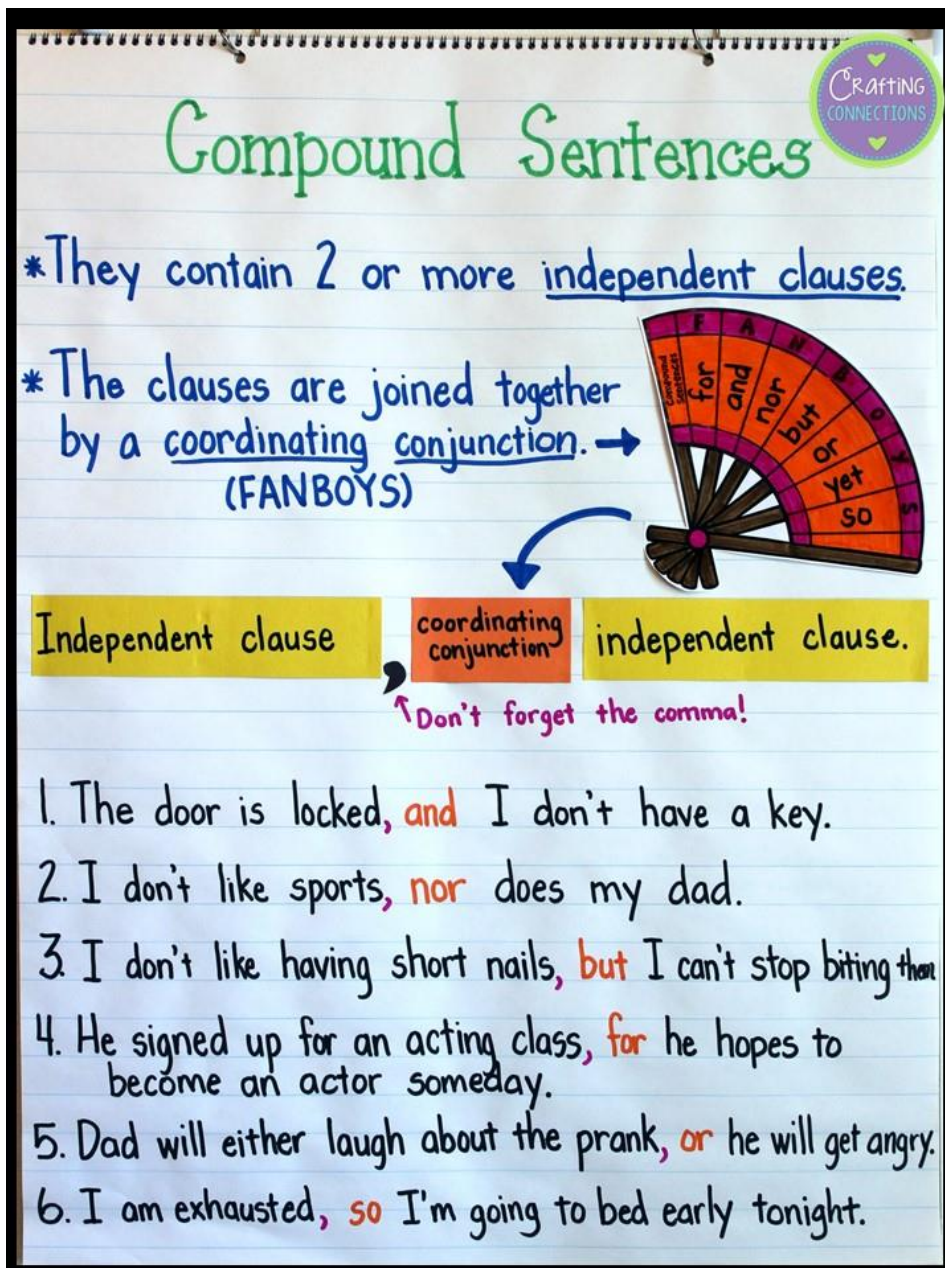 CRAFTING
CONNECTIONS
Compound Sentences
*They contain 2 or more independent clauses.
* The clauses are joined together
by a coordinating conjunction. →
(FANBOYS)
F A N B O Y S
Compound
Sentences
for
and
nor
but
or
yet
so
Independent clause , coordinating conjunction independent clause.
↑Don't forget the comma!
1. The door is locked, and I don't have a key.
2. I don't like sports, nor does my dad.
3. I don't like having short nails, but I can't stop biting them
4. He signed up for an acting class, for he hopes to
become an actor someday.
5. Dad will either laugh about the prank, or he will get angry.
6. I am exhausted, so I'm going to bed early tonight.